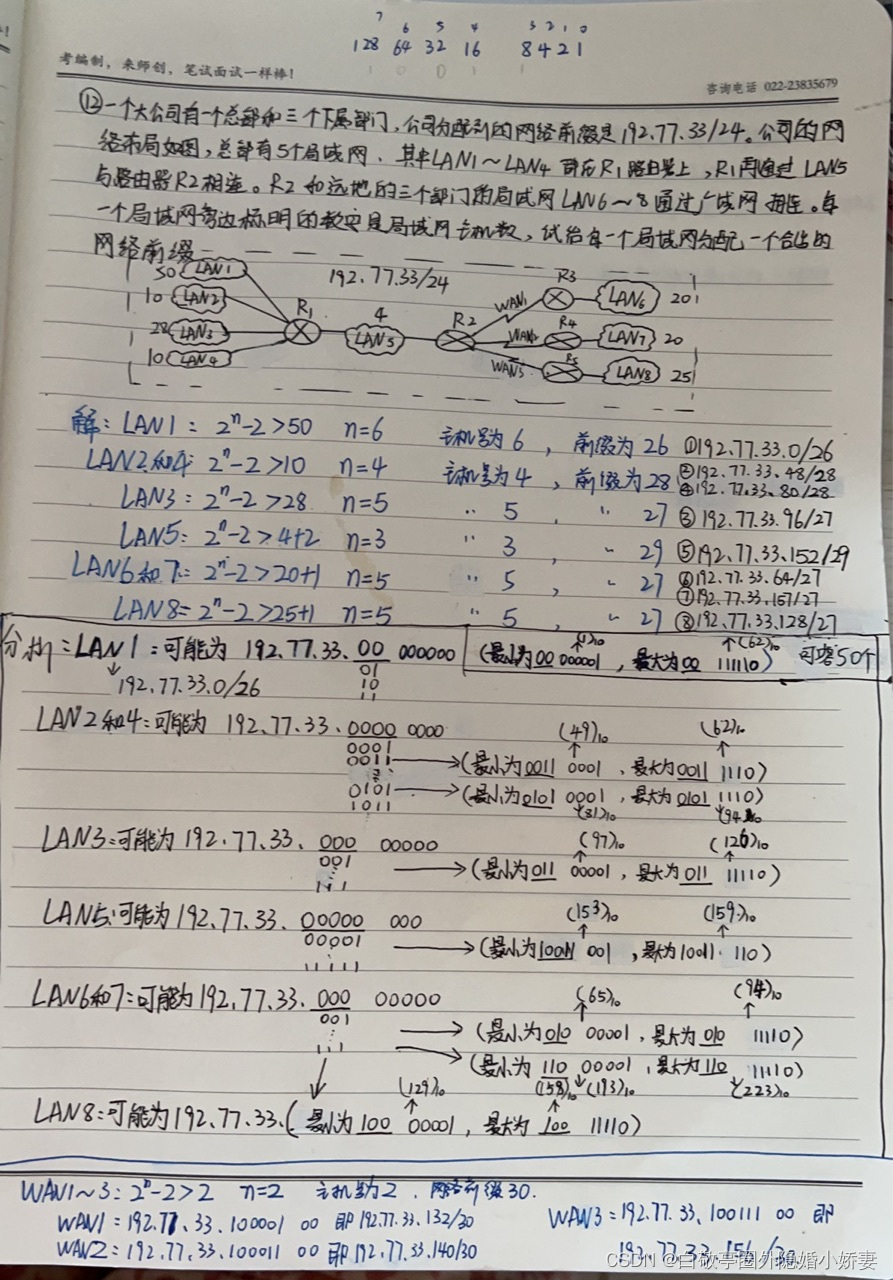 7 6 5 4 3 2 1 0
128 64 32 16 8 4 2 1
考编制，来师创，笔试面试一样棒！
咨询电话 022-23835679
⑫一个大公司有一个总部和三个下属部门，公司分配到的网络前缀是192.77.33/24。公司的网
络布局如图，总部有5个局域网，其中LAN1～LAN4都在R1路由器上，R1再通过LAN5
与路由器R2相连。R2和远地的三个部门的局域网LAN6～8通过广域网相连。每
一个局域网旁边标明的数字是局域网主机数，试给每一个局域网分配一个合适的
网络前缀
192.77.33/24
50 LAN1
10 LAN2
28 LAN3
10 LAN4
R1
4
LAN5
R2
WAN1 R3 LAN6 20
WAN2 R4 LAN7 20
WAN3 R5 LAN8 25
解：LAN1：2ⁿ-2>50 n=6 主机号为6，前缀为26 ①192.77.33.0/26
LAN2和4：2ⁿ-2>10 n=4 主机号为4，前缀为28 ②192.77.33.48/28
④192.77.33.80/28
LAN3：2ⁿ-2>28 n=5 〃 5，〃 27 ③192.77.33.96/27
LAN5：2ⁿ-2>4+2 n=3 〃 3，〃 29 ⑤192.77.33.152/29
LAN6和7：2ⁿ-2>20+1 n=5 〃 5，〃 27 ⑥192.77.33.64/27
⑦192.77.33.157/27
LAN8=2ⁿ-2>25+1 n=5 〃 5，〃 27 ⑧192.77.33.128/27
分析：LAN1：可能为 192.77.33.00 000000 (最小为00 000001，最大为00 11110) 可容50个
(1)₁₀ (62)₁₀
01
10
11
192.77.33.0/26
LAN2和4：可能为 192.77.33.0000 0000
(49)₁₀ (62)₁₀
0001
0011 (最小为0011 0001，最大为0011 1110)
0101 (最小为0101 0001，最大为0101 1110)
1011
(81)₁₀ (94)₁₀
LAN3：可能为192.77.33.000 00000
(97)₁₀ (126)₁₀
001
(最小为011 00001，最大为011 11110)
111
LAN5：可能为192.77.33.00000 000
(153)₁₀ (159)₁₀
00001
(最小为10011 001，最大为10011 110)
11111
LAN6和7：可能为192.77.33.000 00000
(65)₁₀ (94)₁₀
001
(最小为010 00001，最大为010 11110)
111
(最小为110 00001，最大为110 11110)
(129)₁₀ (158)₁₀ (193)₁₀ (223)₁₀
LAN8：可能为192.77.33.(最小为100 00001，最大为100 11110)
WAN1～3：2ⁿ-2>2 n=2 主机号为2，网络前缀30.
WAN1=192.77.33.100001 00 即192.77.33.132/30
WAN2=192.77.33.100011 00 即192.77.33.140/30
WAN3=192.77.33.100111 00 即
192.77.33.156/30
CSDN @白敬亭圈外隐婚小娇妻